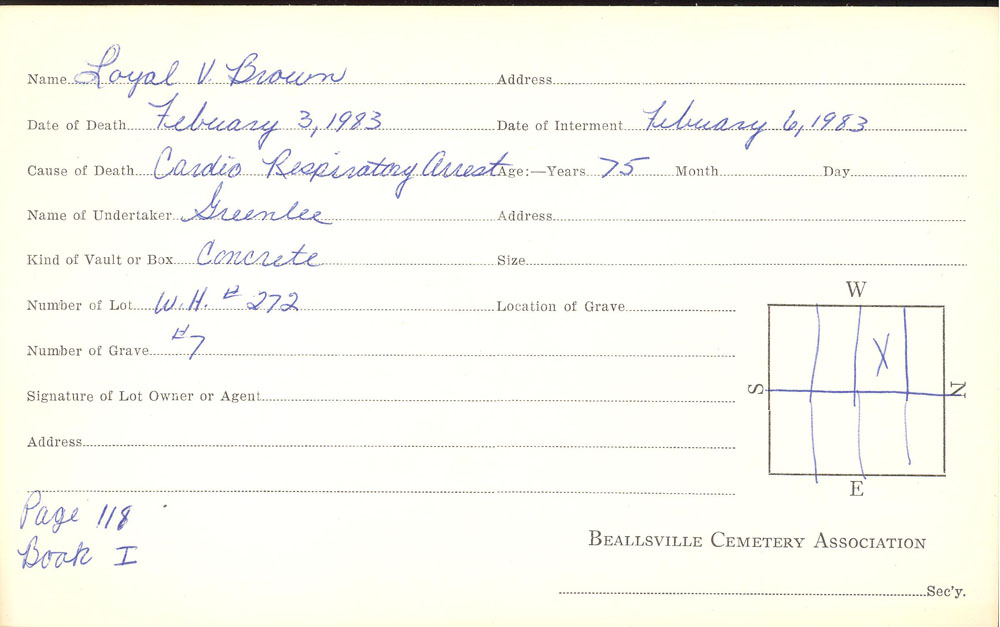 Name Loyal V. Brown Address
Date of Death Febuary 3, 1983 Date of Interment Febuary 6, 1983
Cause of Death Cardio Respiratory Arrest Age:—Years 75 Month Day
Name of Undertaker Greenlee Address
Kind of Vault or Box Concrete Size
Number of Lot W.H. # 272 Location of Grave
W
Number of Grave #7
X
S
N
Signature of Lot Owner or Agent
Address
E
Page 118
Book I
BEALLSVILLE CEMETERY ASSOCIATION
Sec'y.